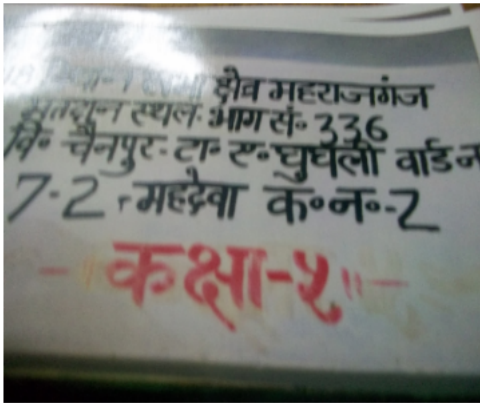 क्षेत्र महराजगंज
मतदान स्थल- भाग सं॰ 336
वि॰ चैनपुर- टा॰ ए॰ घुघली वार्ड न
7-2, महदेवा क॰ न॰-2
-"कक्षा-५"-